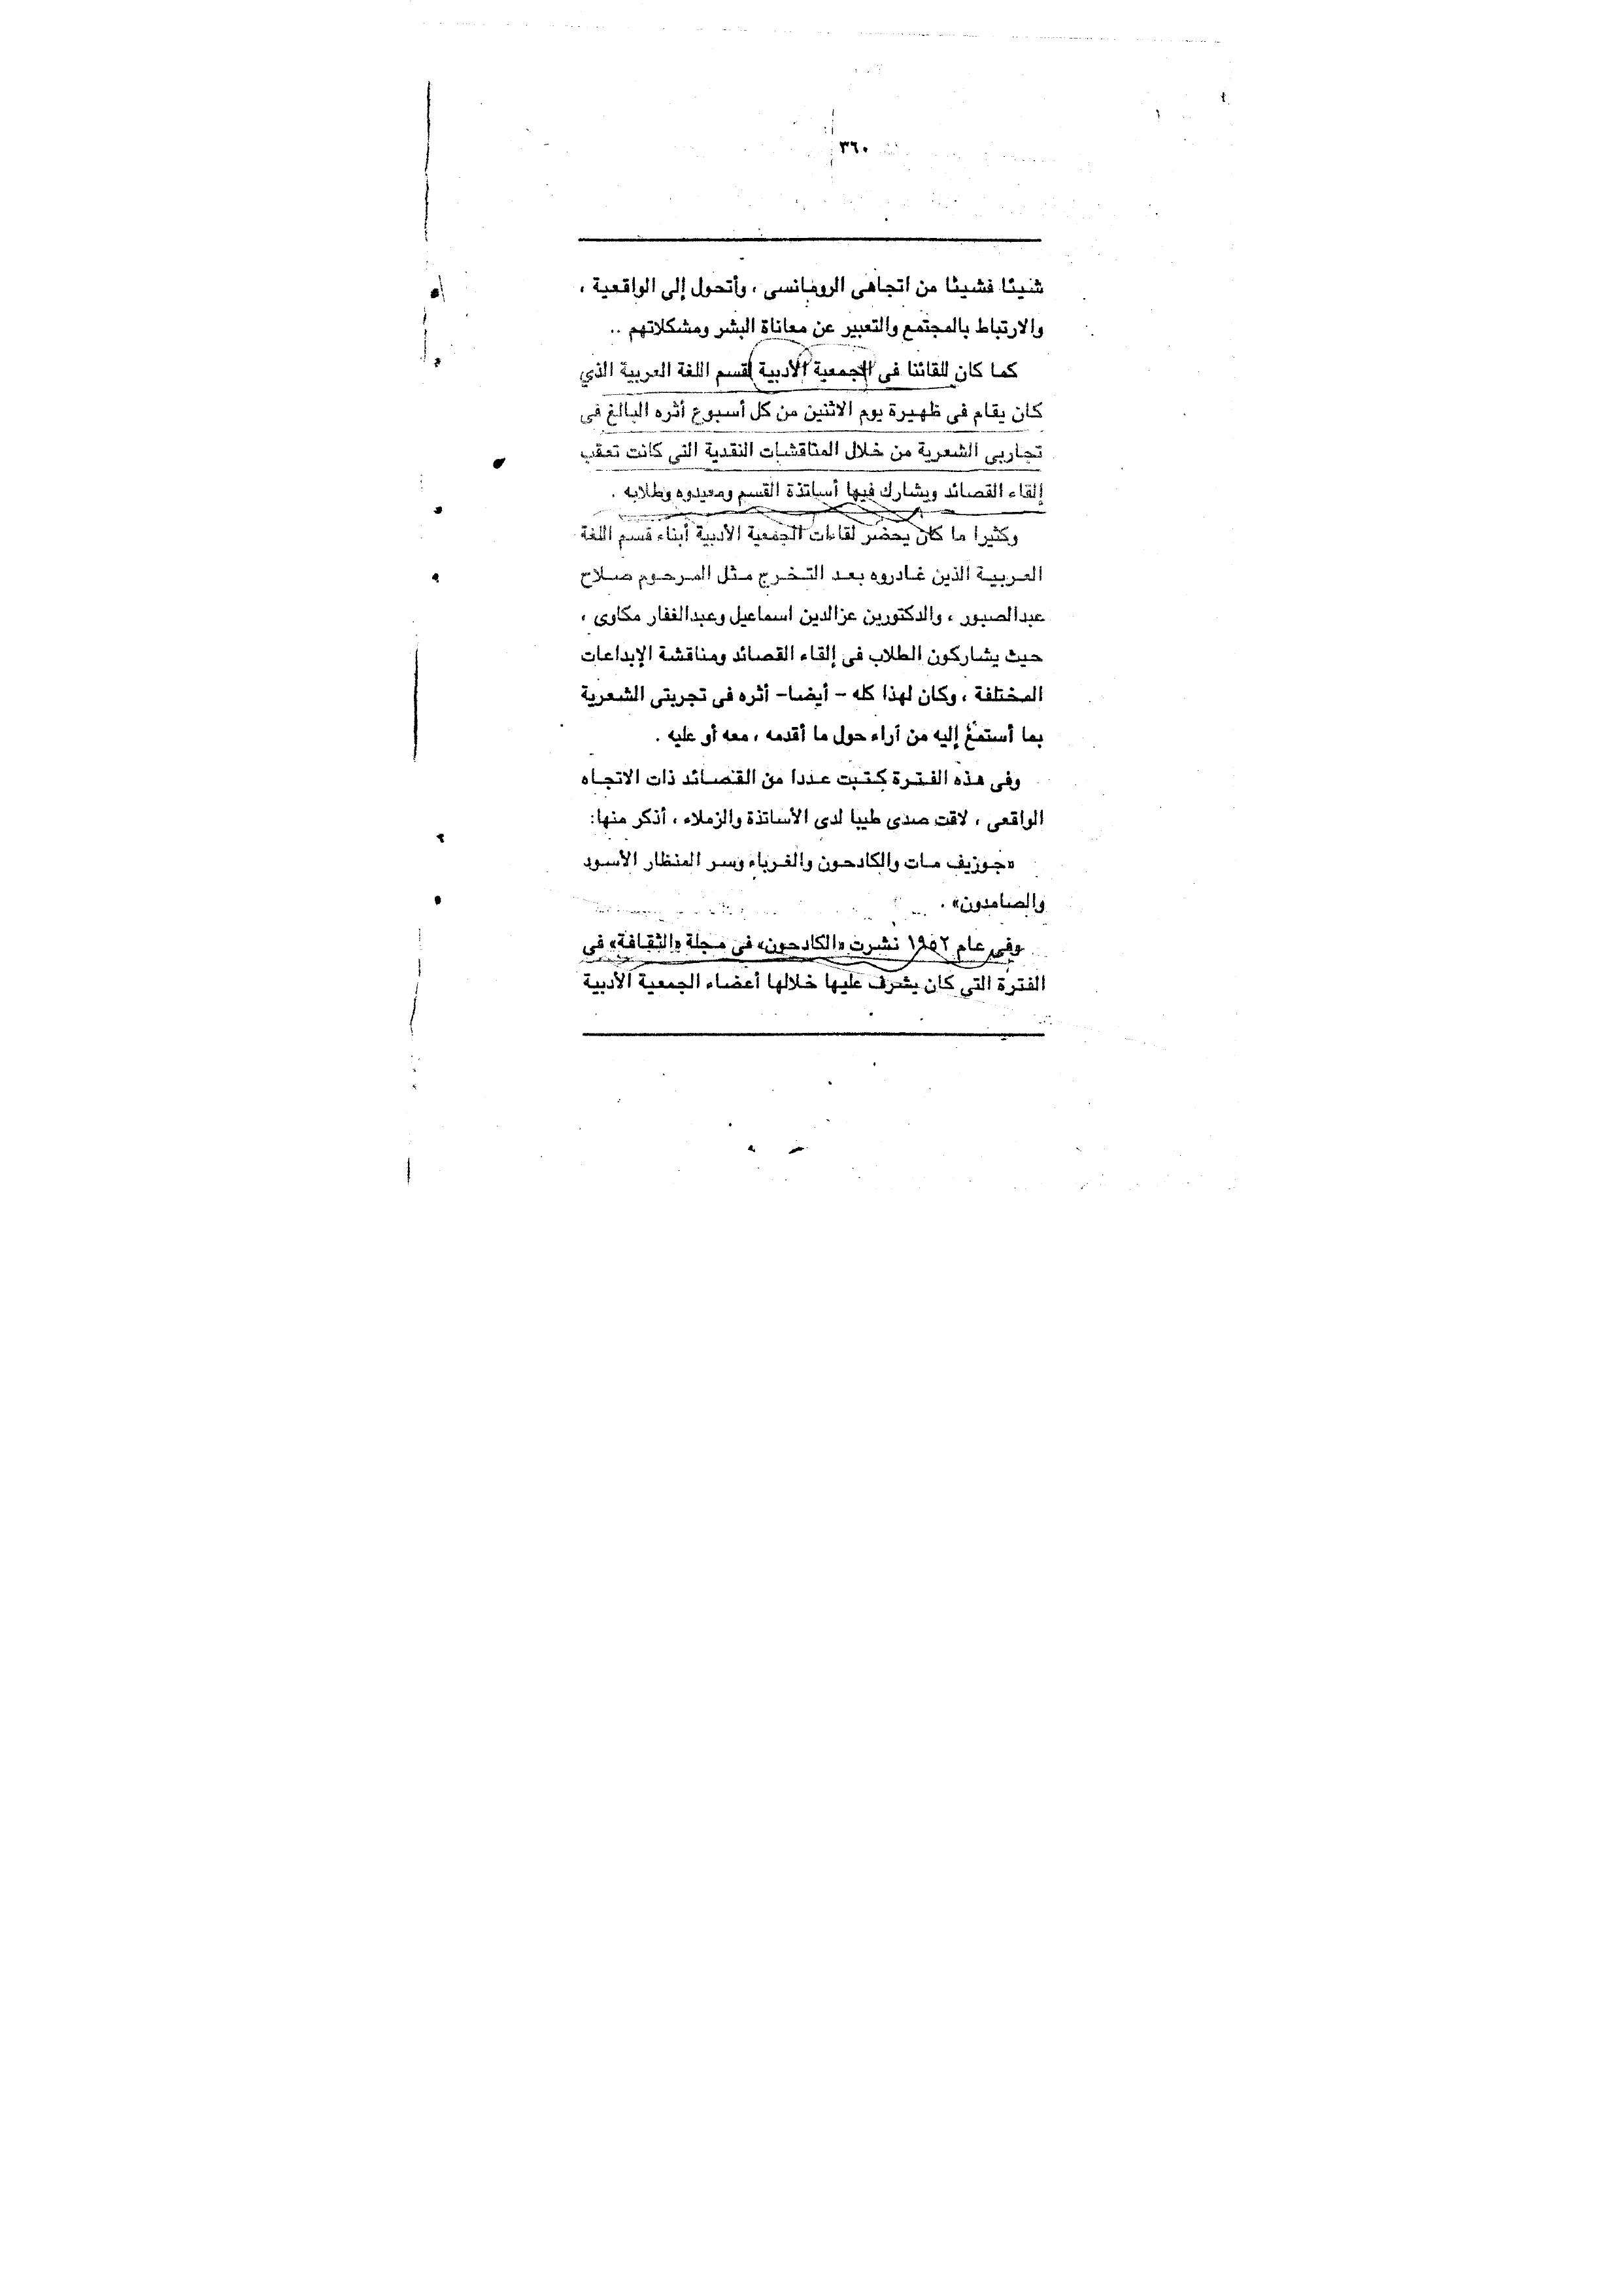 ٣٦٠
شيئا فشيئا من اتجاهى الرومانسى ، وأتحول إلى الواقعية ،
والارتباط بالمجتمع والتعبير عن معاناة البشر ومشكلاتهم ..
كما كان للقائنا فى الجمعية الأدبية لقسم اللغة العربية الذي
كان يقام فى ظهيرة يوم الاثنين من كل أسبوع أثره البالغ فى
تجاربى الشعرية من خلال المناقشات النقدية التى كانت تعقب
إلقاء القصائد ويشارك فيها أساتذة القسم ومعيدوه وطلابه .
وكثيرا ما كان يحضر لقاءات الجمعية الأدبية أبناء قسم اللغة
العربية الذين غادروه بعد التخرج مثل المرحوم صلاح
عبدالصبور ، والدكتورين عزالدين اسماعيل وعبدالغفار مكاوى ،
حيث يشاركون الطلاب فى إلقاء القصائد ومناقشة الإبداعات
المختلفة ، وكان لهذا كله - أيضا- أثره فى تجربتى الشعرية
بما أستمع إليه من آراء حول ما أقدمه ، معه أو عليه .
وفى هذه الفترة كتبت عددا من القصائد ذات الاتجاه
الواقعى ، لاقت صدى طيبا لدى الأساتذة والزملاء ، أذكر منها:
«جوزيف مات والكادحون والغرباء وسر المنظار الأسود
والصامدون» .
وفى عام ١٩٥٢ نشرت «الكادحون» فى مجلة «الثقافة» فى
الفترة التى كان يشرف عليها خلالها أعضاء الجمعية الأدبية